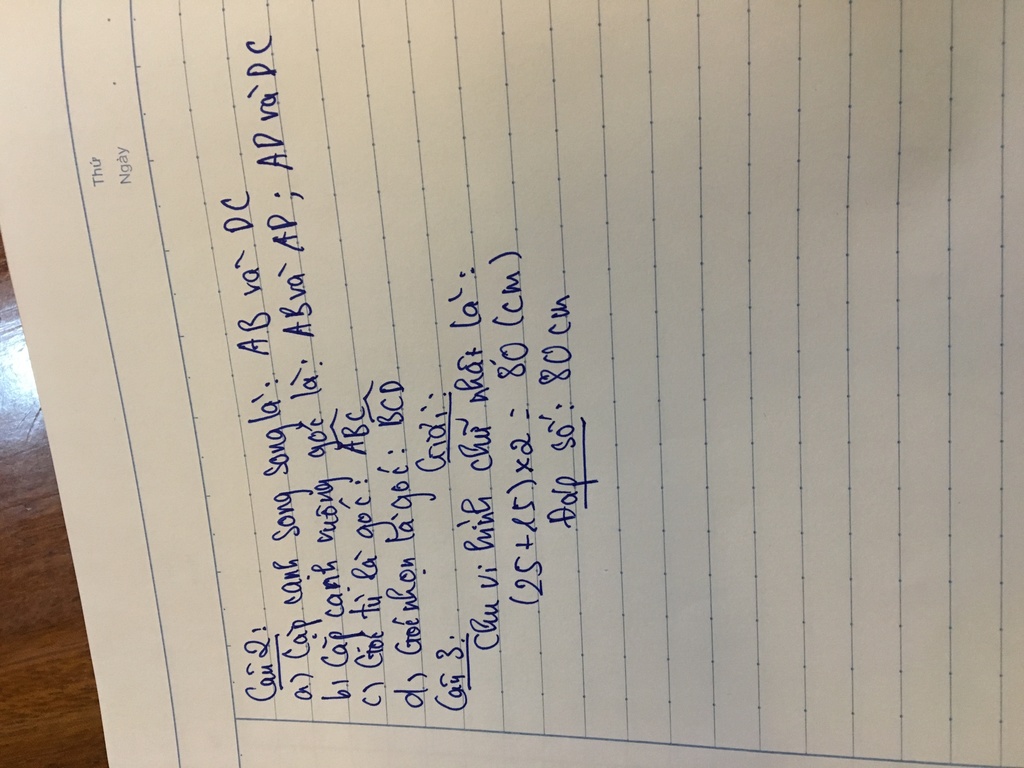 Thứ
Ngày
Câu 2:
a) Cặp cạnh song song là: AB và DC
b) Cặp cạnh vuông góc là: AB và AD ; AD và DC
c) Góc tù là góc: ABC
d) Góc nhọn là góc: BCD
Câu 3: Giải:
Chu vi hình chữ nhật là:
(25+15)×2 = 80 (cm)
Đáp số: 80 cm